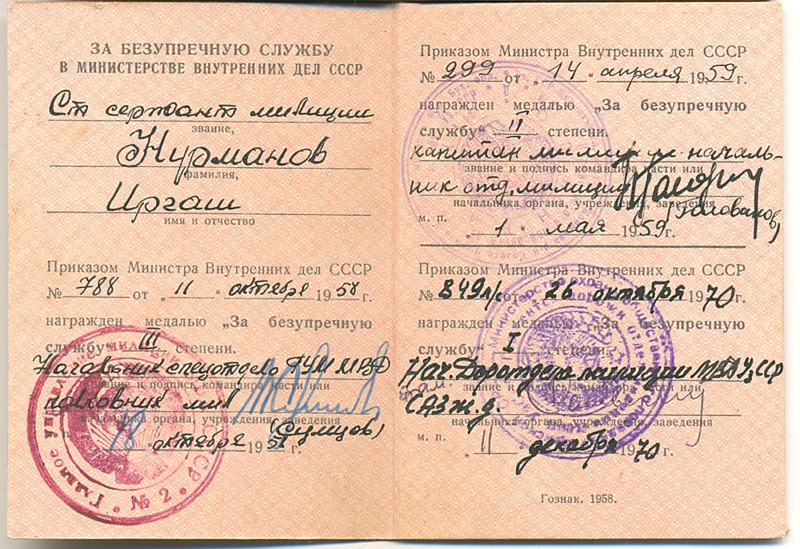 ЗА БЕЗУПРЕЧНУЮ СЛУЖБУ
В МИНИСТЕРСТВЕ ВНУТРЕННИХ ДЕЛ СССР
Ст сержант милиции
звание,
Нурманов
фамилия,
Иргаш
имя и отчество
Приказом Министра Внутренних дел СССР
№ 788 от "11" октября 1958 г.
награжден медалью „За безупречную
службу" III степени.
Начальник спецотдела ГУМ МВД
звание и подпись командира части или
полковник мил (Сумцов)
начальника органа, учреждения, заведения
м. п. 18 октября 195
Главное управление милиции
СССР
* № 2 *
Приказом Министра Внутренних дел СССР
№ 299 от "14" апреля 1959 г.
награжден медалью „За безупречную
службу" II степени.
капитан милиции началь-
звание и подпись командира части или
ник отд. милиции
начальника органа, учреждения, заведения
(Голованов)
м. п. "1" мая 1959 г.
Приказом Министра Внутренних дел СССР
№ 849 л/с от 28 октября 1970
награжден медалью „За безупречную
службу" I степени.
Нач. Доротдела милиции МВД УзССР
звание и подпись командира части или
САЗ ж.д.
начальника органа, учреждения, заведения
м. п. "11" декабря 1970
Министерство охраны общественного
Гознак. 1958.